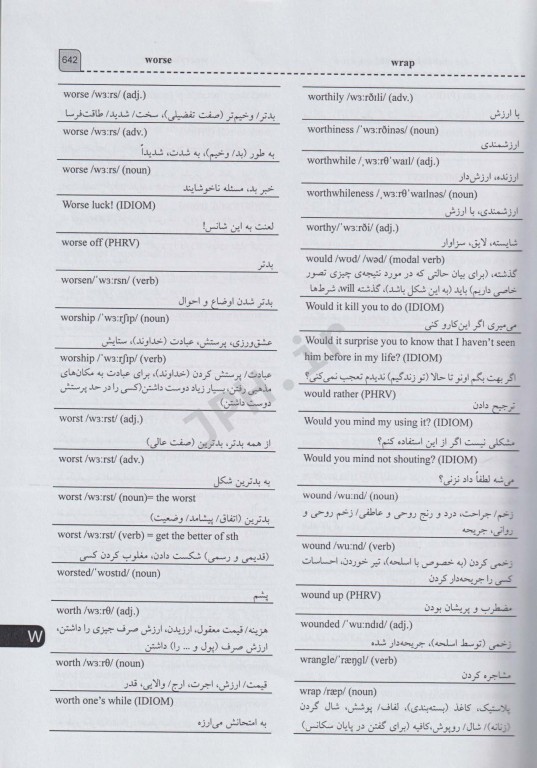 642
worse
wrap
worse /wɜːrs/ (adj.)
بدتر/ وخیم‌تر (صفت تفضیلی)، سخت/ شدید/ طاقت‌فرسا
worse /wɜːrs/ (adv.)
به طور (بد/ وخیم)، به شدت، شدیداً
worse /wɜːrs/ (noun)
خبر بد، مسئله ناخوشایند
Worse luck! (IDIOM)
لعنت به این شانس!
worse off (PHRV)
بدتر
worsen/ˈwɜːrsn/ (verb)
بدتر شدن اوضاع و احوال
worship /ˈwɜːrʃɪp/ (noun)
عشق‌ورزی، پرستش، عبادت (خداوند)، ستایش
worship /ˈwɜːrʃɪp/ (verb)
عبادت/ پرستش کردن (خداوند)، برای عبادت به مکان‌های
مذهبی رفتن، بسیار زیاد دوست داشتن(کسی را در حد پرستش
دوست داشتن)
worst /wɜːrst/ (adj.)
از همه بدتر، بدترین (صفت عالی)
worst /wɜːrst/ (adv.)
به بدترین شکل
worst /wɜːrst/ (noun)= the worst
بدترین (اتفاق/ پیشامد/ وضعیت)
worst /wɜːrst/ (verb) = get the better of sth
(قدیمی و رسمی) شکست دادن، مغلوب کردن کسی
worsted/ˈwʊstɪd/ (noun)
پشم
worth /wɜːrθ/ (adj.)
هزینه/ قیمت معقول، ارزیدن، ارزش صرف چیزی را داشتن،
ارزش صرف (پول و ... را) داشتن
worth /wɜːrθ/ (noun)
قیمت/ ارزش، اجرت، ارج/ والایی، قدر
worth one’s while (IDIOM)
به امتحانش می‌ارزه
W
worthily /wɜːrðɪli/ (adv.)
با ارزش
worthiness /ˈwɜːrðinəs/ (noun)
ارزشمندی
worthwhile /ˌwɜːrθˈwaɪl/ (adj.)
ارزنده، ارزش‌دار
worthwhileness /ˌwɜːrθˈwaɪlnəs/ (noun)
ارزشمندی، با ارزش
worthy/ˈwɜːrði/ (adj.)
شایسته، لایق، سزاوار
would /wʊd/ /wəd/ (modal verb)
گذشته، (برای بیان حالتی که در مورد نتیجه‌ی چیزی تصور
خاصی داریم) باید (به این شکل باشد)، گذشته will، شرط‌ها
Would it kill you to do (IDIOM)
می‌میری اگر این‌کارو کنی
Would it surprise you to know that I haven’t seen
him before in my life? (IDIOM)
اگر بهت بگم اونو تا حالا (تو زندگیم) ندیدم تعجب نمی‌کنی؟
would rather (PHRV)
ترجیح دادن
Would you mind my using it? (IDIOM)
مشکلی نیست اگر از این استفاده کنم؟
Would you mind not shouting? (IDIOM)
می‌شه لطفاً داد نزنی؟
wound /wuːnd/ (noun)
زخم/ جراحت، درد و رنج روحی و عاطفی/ زخم روحی و
روانی، جریحه
wound /wuːnd/ (verb)
زخمی کردن (به خصوص با اسلحه)، تیر خوردن، احساسات
کسی را جریحه‌دار کردن
wound up (PHRV)
مضطرب و پریشان بودن
wounded /ˈwuːndɪd/ (adj.)
زخمی (توسط اسلحه)، جریحه‌دار شده
wrangle/ˈræŋɡl/ (verb)
مشاجره کردن
wrap /ræp/ (noun)
پلاستیک، کاغذ (بسته‌بندی)، لفاف/ پوشش، شال گردن
(زنانه)/ شال/ روپوش،کافیه (برای گفتن در پایان سکانس)